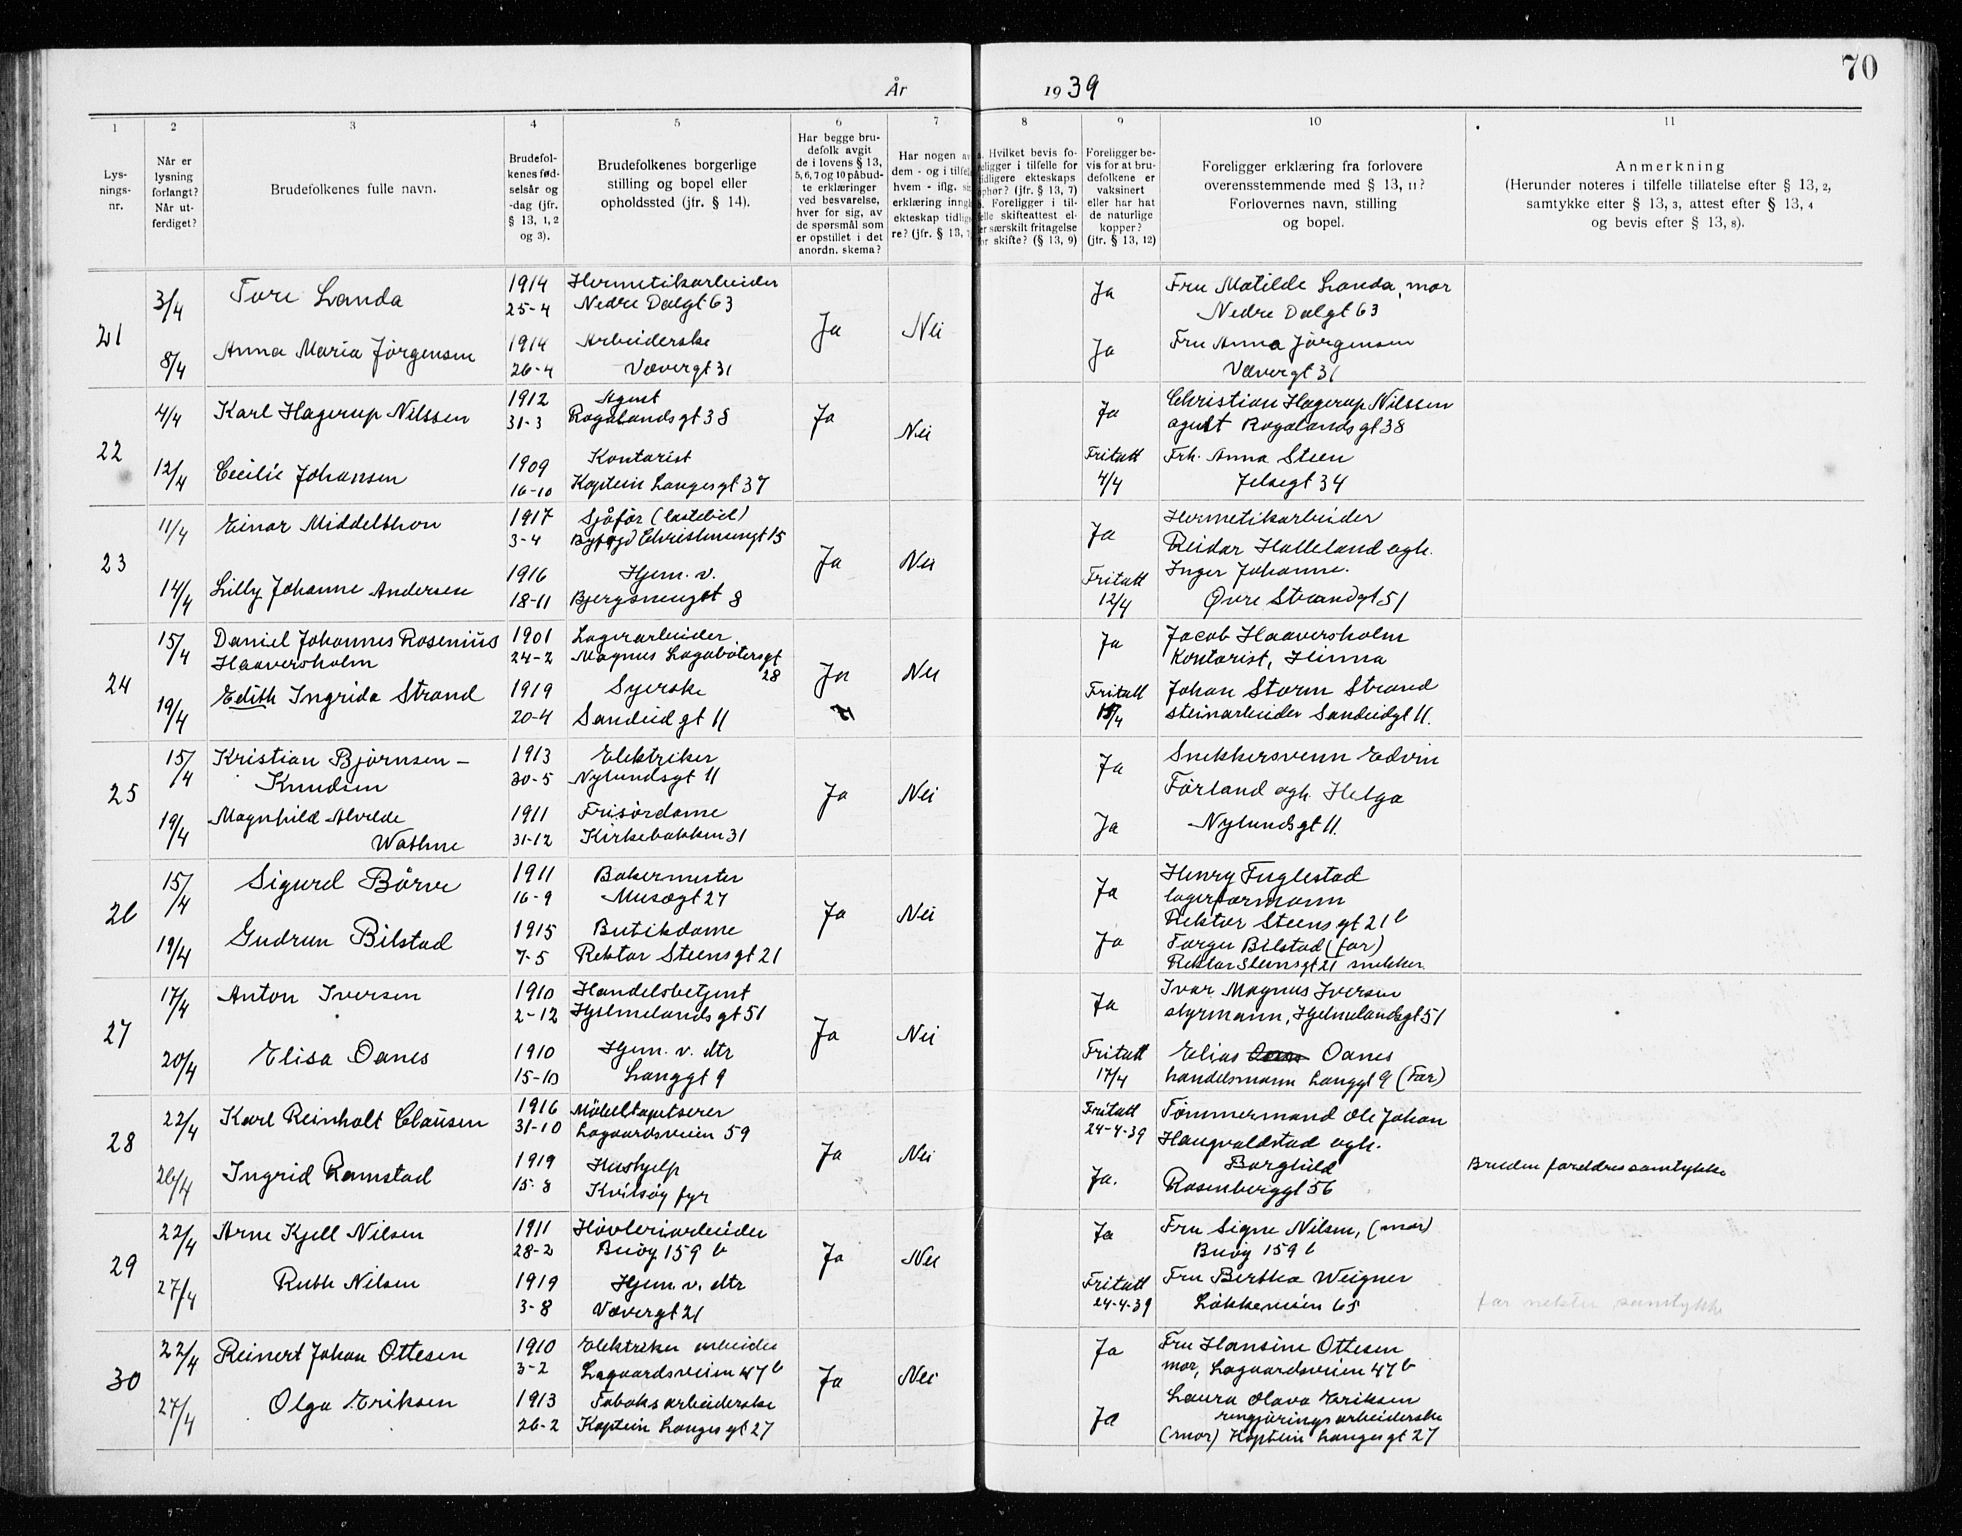 70
År 1939
1 2 3 4 5 6 7 8 9 10 11
Lys-
nings-
nr.
Når er
lysning
forlangt?
Når ut-
ferdiget?
Brudefolkenes fulle navn.
Brudefol-
kenes fød-
selsår og
-dag (jfr.
§ 13, 1, 2
og 3).
Brudefolkenes borgerlige
stilling og bopel eller
opholdssted (jfr. § 14).
Har begge bru-
defolk avgit
de i lovens § 13,
5, 6, 7 og 10 påbud-
te erklæringer
ved besvarelse,
hver for sig, av
de spørsmål som
er opstillet i det
anordn. skema?
Har nogen av
dem - og i tilfelle
hvem - iflg. sin
erklæring inngått
ekteskap tidlige-
re? (jfr. § 13,
Hvilket bevis fo-
religger i tilfelle for
tidligere ekteskaps
ophør? (jfr. § 13, 7)
Foreligger i til-
felle skifteattest el-
er særskilt fritagelse
or skifte? (§ 13, 9)
Foreligger be-
vis for at bru-
defolkene er
vaksinert
eller har hat
de naturlige
kopper?
(jfr. § 13, 12)
Foreligger erklæring fra forlovere
overensstemmende med § 13, 11?
Forlovernes navn, stilling
og bopel.
Anmerkning
(Herunder noteres i tilfelle tillatelse efter § 13, 2,
samtykke efter § 13, 3, attest efter § 13, 4
og bevis efter § 13, 8).
21 3/4 Tore Landa 1914 Hermetikarbeider Ja Fru Matilde Landa, mor
25-4 Nedre Dalgt 63 Ja Nei Nedre Dalgt 63
8/4 Anna Maria Jørgensen 1914 Arbeiderske Ja Fru Anna Jørgensen
26-4 Vævergt 31 Vævergt 31
22 4/4 Karl Hagerup Nilssen 1912 Agent Ja Christian Hagerup Nilssen
31-3 Rogalandsgt 38 Ja Nei agent Rogalandsgt 38
12/4 Cecilie Johansen 1909 Kontorist Fritatt Frk. Anna Steen
16-10 Kaptein Langesgt 37 4/4 Jelsegt 34
23 11/4 Einar Middelthon 1917 Sjåfør (lastebil) Ja Hermetikarbeider
3-4 15 Ja Nei Reidar Halleland ogh.
14/4 Lilly Johanne Andersen 1916 Hjem. v. Fritatt Inger Johanne.
18-11 8 12/4 Øvre Strandgt 51
24 15/4 Daniel Johannes Rosenius 1901 Lagerarbeider Ja Jacob Haaversholm
Haaversholm 24-2 Magnus Lagabøtersgt 28 Ja Nei Kontorist, Hinna
19/4 Edith Ingrida Strand 1919 Syerske Fritatt Johan Storm Strand
20-4 Sandeidgt 11 15/4 steinarbeider Sandeidgt 11.
25 15/4 Kristian Bjørnsen - 1913 Elektriker Ja Snekkersvenn Edvin
Knudsen 30-5 Nylundsgt 11 Ja Nei Førland ogh. Helga
19/4 Magnhild Alvilde 1911 Frisørdame Ja Nylundsgt 11.
Wathne 31-12 Kirkebakken 31
26 15/4 Sigurd Børve 1911 Bakermester Ja Henry Fuglestad
16-9 Musegt 27 Ja Nei lagerformann
Rektor Steensgt 21 b
19/4 Gudrun Bilstad 1915 Butikdame Ja Torger Bilstad (far)
7-5 Rektor Steensgt 21 Rektor Steensgt 21 snekker
27 17/4 Anton Iversen 1910 Handelsbetjent Ja Ivar Magnus Iversen
2-12 Hjelmelandsgt 51 Ja Nei styrmann, Hjelmelandsgt 51
20/4 Elisa Oanes 1910 Hjem. v. dtr Fritatt Elias Oanes
15-10 Langgt 9 17/4 handelsmann Langgt 9 (Far)
28 22/4 Karl Reinholt Clausen 1916 Møbeltapetserer Fritatt Tømmermand Ole Johan
31-10 Lagaardsveien 59 24-4-39 Haugvaldstad ogh.
26/4 Ingrid Ramstad 1919 Hushjelp Ja Nei Borghild Bruden foreldres samtykke
15-8 Kvitsøy fyr Ja. Rosenberggt 56
29 22/4 Arne Kjell Nilsen 1911 Høvleriarbeider Ja Fru Signe Nilsen, (mor)
28-2 Buøy 159 b Ja Nei Buøy 159 b
27/4 Ruth Nilsen 1919 Hjem. v. dtr Fritatt Fru Bertha Weigner
3-8 Vævergt 21 24-4-39 Løkkeveien 65 far nekter samtykke
30 22/4 Reinert Johan Ottesen 1910 Elektriker arbeider Ja Fru Hansine Ottesen
3-2 Lagaardsveien 47 b Ja Nei mor, Lagaardsveien 47 b
27/4 Olga Eriksen 1913 Tobaksarbeiderske Ja Laura Olava Eriksen
26-2 Kaptein Langesgt 27 rengjøringsarbeiderske
(mor) Kaptein Langesgt 27